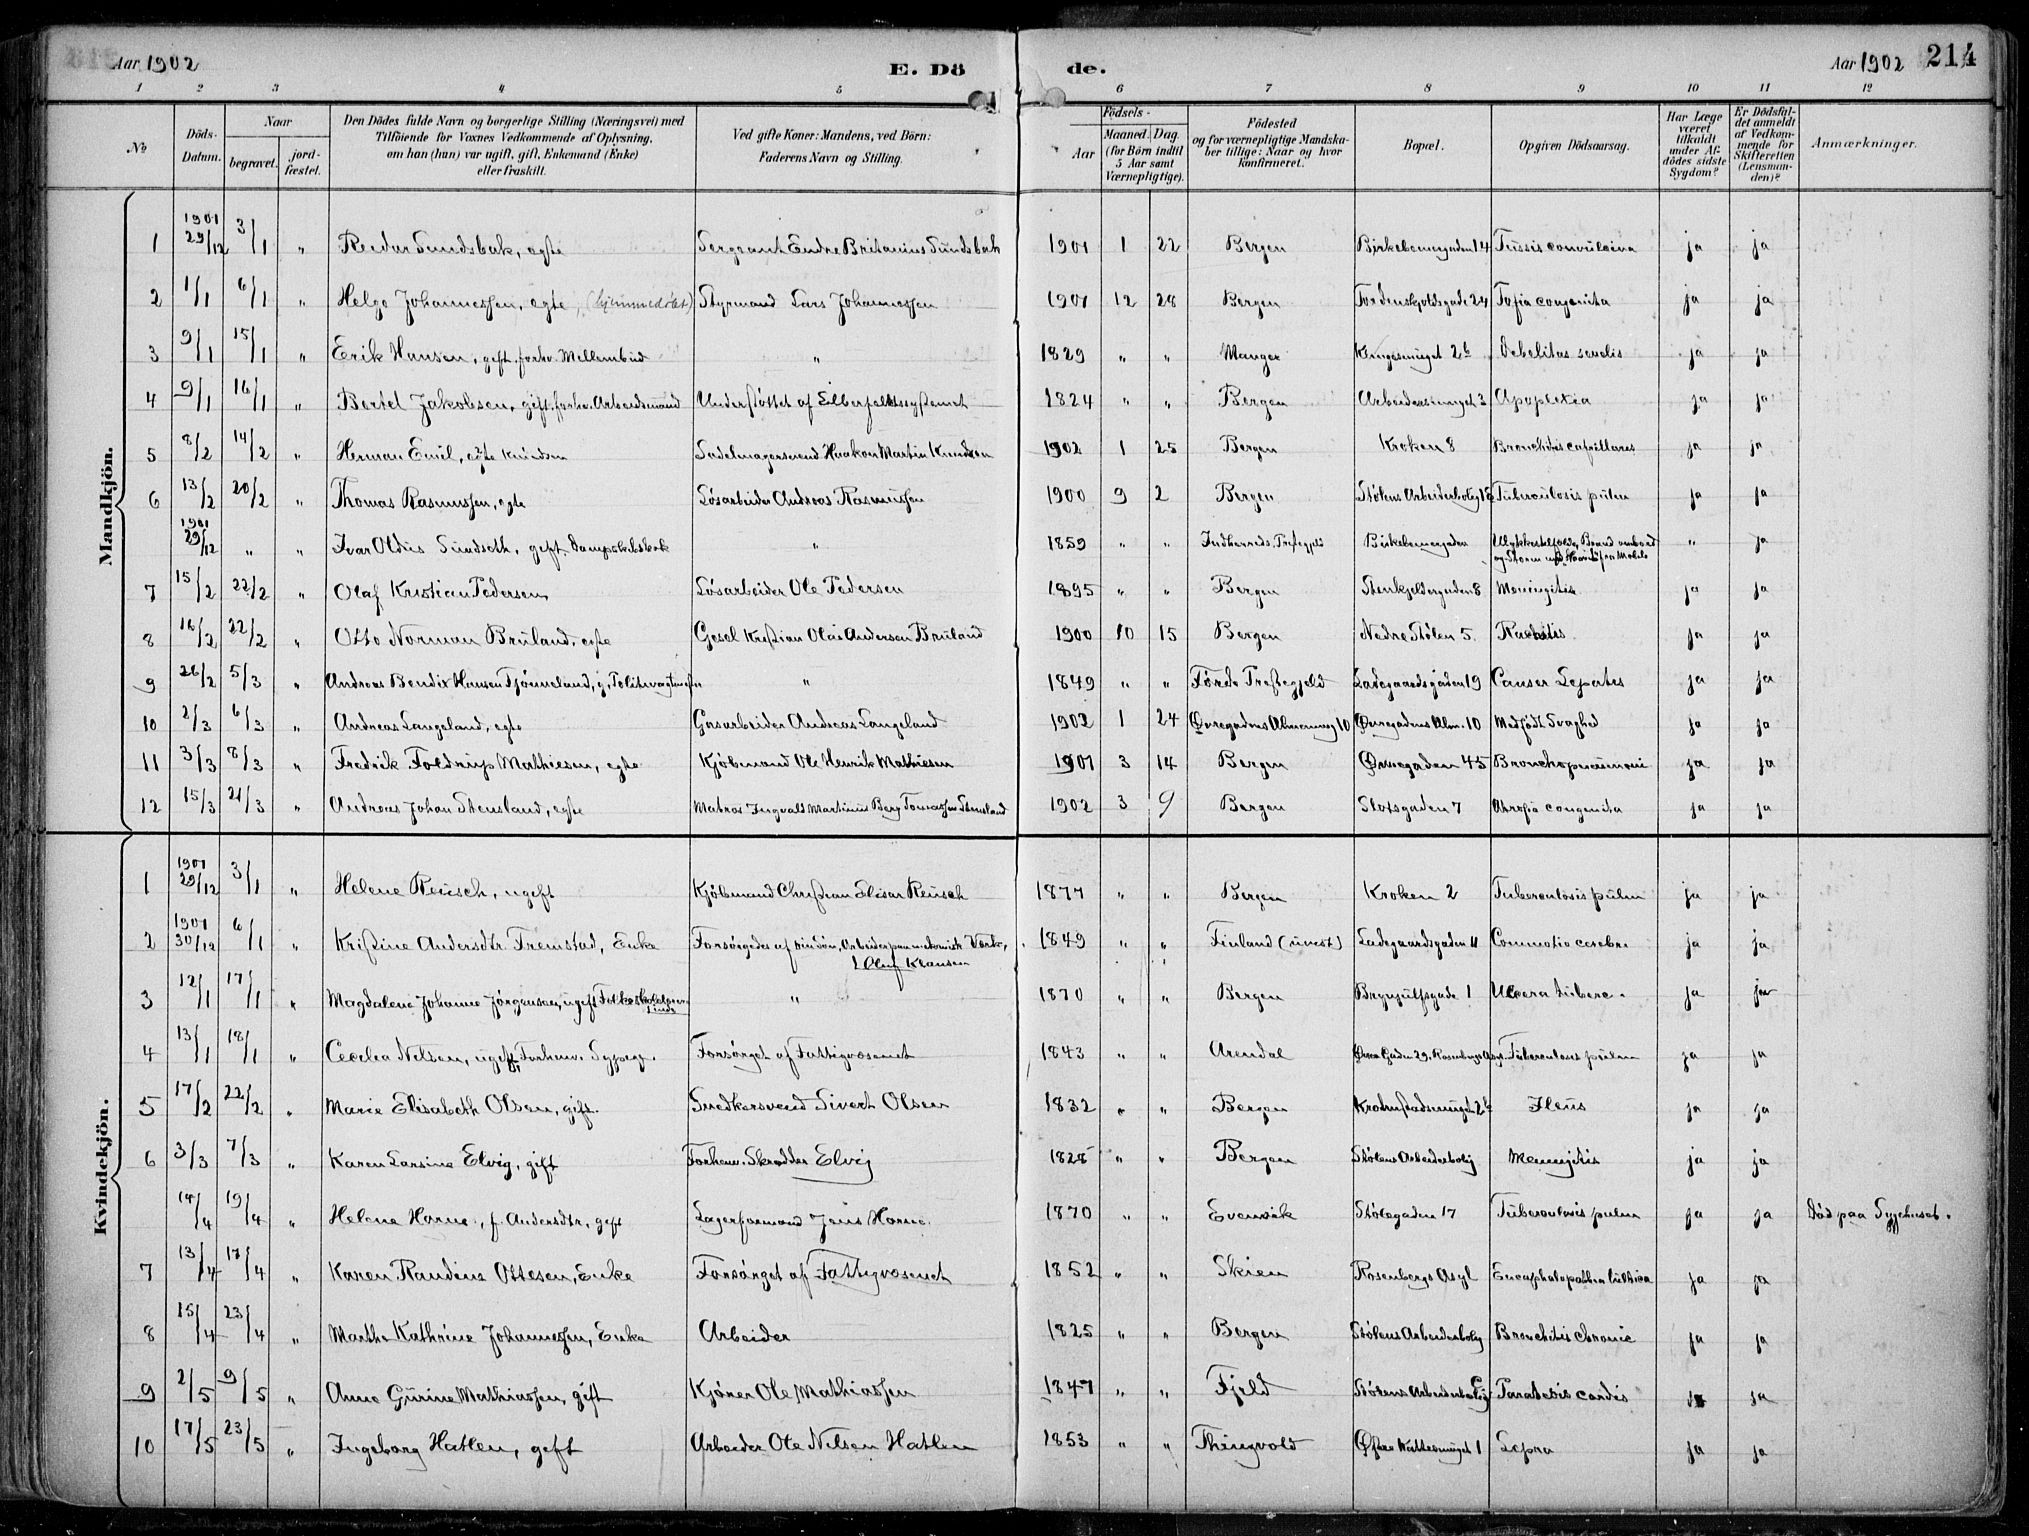 Aar 1902 E. Dö de. Aar 1902 214
1 2 3 4 5 6 7 8 9 10 11 12
No
Döds-Datum.
Naar
begravet.
jord-fæstet.
Den Dödes fulde Navn og borgerlige Stilling (Næringsvei) med
Tilföiende for Voxnes Vedkommende af Oplysning,
om han (hun) var ugift, gift, Enkemand (Enke)
eller fraskilt.
Ved gifte Koner: Mandens, ved Börn:
Faderens Navn og Stilling.
Födsels-
Aar
Maaned. Dag.
(for Börn indtil
5 Aar samt
Værnepligtige).
Födested
og for værnepligtige Mandska-
ber tillige: Naar og hvor
konfirmeret.
Bopæl.
Opgiven Dödsaarsag.
Har Læge
været
tilkaldt
under Af-
dödes sidste
Sygdom?
Er Dödsfal-
det anmeldt
af Vedkom-
mende for
Skifteretten
(Lensman-
den)?
Anmærkninger.
Mandkjön.
1 1901 29/12 3/1 " Reidar Sundsbak, egte Sergeant Endre Britanius Sundsbak 1901 1 22 Bergen Birkebeinergaden 14 Tussis convulsiva ja ja
2 1/1 6/1 " Helge Johannessen, egte, (hjemmedøbt) Styrmand Lars Johannessen 1901 12 28 Bergen Tordenskjoldsgade 24 congenita ja ja
3 9/1 15/1 " Erik Hansen, gift, forhv. Mellembud " 1829 " " Manger 2b Debilitas senilis ja ja
4 9/1 16/1 " Bertel Jakobsen, gift, forhv. Arbeidsmand Understøttet af 1824 " " Bergen 3 Apoplexia ja ja
5 8/2 14/2 " Herman Emil, egte Knudsen Sadelmagersvend Haakon Martin Knudsen 1902 1 25 Bergen Kroken 8 Bronchitis capillares ja ja
6 13/2 20/2 " Thomas Rasmussen, egte Løsarbeider Andreas Rasmussen 1900 9 2 Bergen Stølens Arbeiderbolig Tuberculosis pulm ja ja
1901 29/12 " " Ivar Oldus Sundseth, gift Dampskibskok " 1859 " " Indherreds Prestegjeld Birkebeinergaden Ulykkestilfælde, Brand ombord
og Storm Mobile " ja
7 15/2 22/2 " Olaf Kristian Pedersen, Løsarbeider Ole Pedersen 1895 " " Bergen Stenkjeldergaden 8 Meningitis ja ja
8 16/2 22/2 " Otto Norman Bruland, egte Gesel Kristian Olai Andersen Bruland 1900 10 15 Bergen Nedre Stølen 5. Rachitis ja ja
9 26/2 5/3 " Andreas Bendix Hansen Tjønneland, g, Politivagtmester " 1849 " " Førde Prestegjeld Ladegaardsgaden 19 Cancer Hepatis ja ja
10 2/3 6/3 " Andreas Langeland, egte Gasarbeider Andreas Langeland 1902 1 24 Øvregadens Almenning 10 Øvregadens Alm. 10 Medfødt Svaghed ja ja
11 3/3 8/3 " Fredrik Mathiesen, egte Kjøbmand Ole Henrik Mathiesen 1901 3 14 Bergen Øvregaden 45 Bronchopneumoni ja ja
12 15/3 21/3 " Andreas Johan Stensland, egte Matros Ingvald Martinus Berg Tomassen Stensland 1902 3 9 Bergen Slotsgaden 7 Atrofia congenita ja ja
Kvindekjön.
1 1901 29/12 3/1 " Helene Reusch, ugift Kjøbmand Christian Elisar Reusch 1877 " " Bergen Kroken 2 Tuberculosis pulm ja ja
2 1901 30/12 6/1 " Kristine Andersdtr. Fremstad, Enke Forsørgedes af sin Søn, Arbeider paa mekanisk Værk,
Oluf Klausen 1849 " " Finland (uvist) Ladegaardsgaden 11 Commotio cerebri ja ja
3 12/1 17/1 " Magdalene Johanne Jørgensen, ugift Folkeskolelærer-
inde " 1870 " " Bergen Brynjulfsgade 1 Ulcera tuberc. ja ja
4 13/1 18/1 " Cecelia Nelsen, ugift, Forhenv. Sypige. Forsørget af Fattigvæsenet 1843 " " Arendal Øvre Gaden 29. Rosenbergs Asyl. Tuberculosis pulm ja ja
5 17/2 22/2 " Marie Elisabeth Olsen, gift. Snedkersvend Sivert Olsen 1832 " " Bergen Ileus ja ja
6 3/3 7/3 " Karen Larsine Elvig, gift Forhenv. Skrædder Elvig 1828 " " Bergen Stølens Arbeiderbolig Meningitis ja ja
14/4 19/4 " Helene Horne, f. Andersdtr, gift Lagerformand Jens Horne. 1870 " " Evenvik Stølegaden 17 Tuberculosis pulm ja ja Död paa Sygehuset.
7 13/4 17/4 " Karen Randine Ottesen, Enke Forsørget af Fattigvæsenet 1852 " " Skien Rosenbergs Asyl Encephalopathia ja ja
8 15/4 23/4 " Marthe Kathrine Johannessen, Enke Arbeider 1825 " " Bergen Stølens Arbeiderbolig Bronchitis chronic ja ja
9 2/5 9/5 " Anne Gurine Mathiassen, gift Kjører Ole Mathiassen 1847 " " Fjeld Stølens Arbeiderbolig Paralysis cordis ja ja
10 17/5 23/5 " Ingeborg Hatlen, gift Arbeider Ole Nilsen Hatlen 1853 " " Thingvold Øfre 1 Lepra ja ja